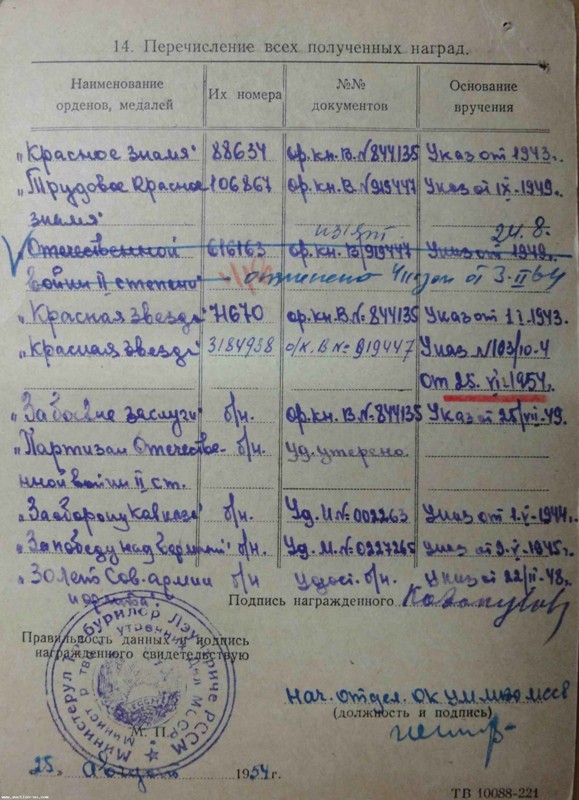 14. Перечисление всех полученных наград.
Наименование орденов, медалей | Их номера | №№ документов | Основание вручения
„Красное знамя" 88634 ор.кн.В.№844135 Указ от 1943г.
„Трудовое Красное 106867 ор.кн.В.№919447 Указ от IX-1949г.
знамя"
изъят. 24.8.
„Отечественной 616163 ор.кн.В.№919447 Указ от 1949г.
войны II степени" - отменено Указом от 3-II 54
„Красная звезда" 71670 ор.кн.В.№844135 Указ от 1943г.
„Красная звезда" 3184938 о/к.В№919447 Указ №103/10-4
от 25.VI-1954г.
„За боевые заслуги" б/н. ор.кн.В.№844135 Указ от 25/VII-49.
„Партизан Отечестве- б/н. уд. утерено.
нной войны II ст.
„За оборону Кавказа" б/н. Уд.И.№002263 Указ от 1.V-1944г.
„За победу над Германией" б/н. Уд.И.№0227265 Указ от 9-V-1945г.
„30 лет Сов. армии б/н удост. б/н. Указ от 22/II-48г.
и флота"
Подпись награжденного
Правильность данных и подпись
награжденного свидетельствую
Министерул Требурилор Лэунтриче РССМ
Министерство внутренних дел МССР
Нач. отдел. ОК УММ МВД МССР
(должность и подпись)
М. П.
„25" Август 1954 г.
ТВ 10088-221